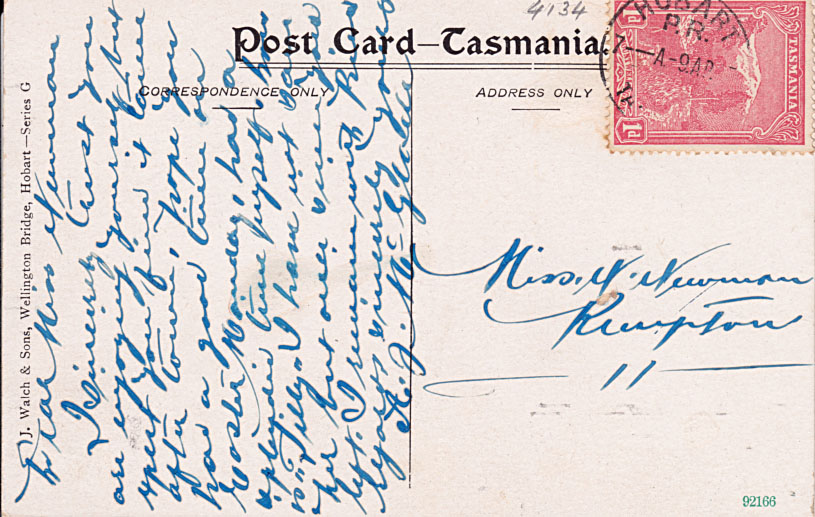 4134
Post Card–Tasmania.
CORRESPONDENCE ONLY
ADDRESS ONLY
HOBART
P.R.
7–A–9AP
TASMANIA
1d
1d
J. Walch & Sons, Wellington Bridge, Hobart—Series G
Dear Miss Newman
I sincerely trust you
are enjoying yourself but
expect you find it tame
after town, hope you
had a good time on
Easter Monday, had a
splendid time myself, how
is Tilly I have not seen
her but once since you
left. I remain with kind
regards sincerely yours
Miss N. Newman
Kempton
11
92166